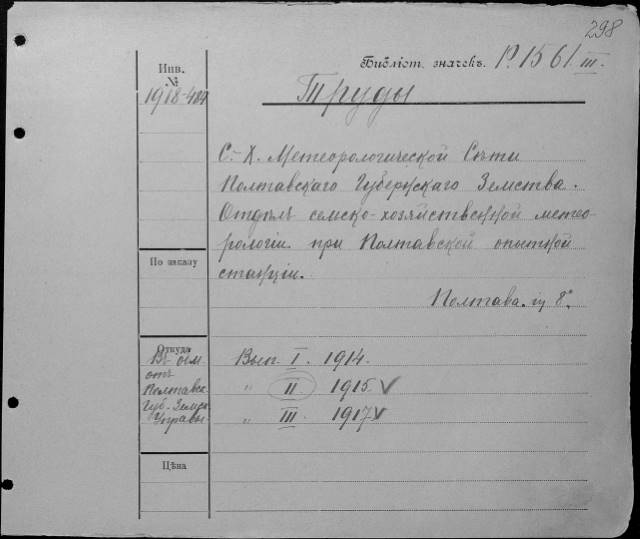 298
Библіот. значекъ. Р. 1561 III.
Инв.
№
1918-484
Труды
С.-Х. Метеорологической Сѣти
Полтавскаго Губернскаго Земства.
Отдѣлъ сельско-хозяйственной метео-
рологіи при Полтавской опытной
станціи.
По заказу
Полтава. in 8°
Откуда
Въ обм.
отъ
Полтавск.
Губ. Земск.
Управы.
Вып. I. 1914.
" II. 1915. V
" III. 1917. V
Цѣна